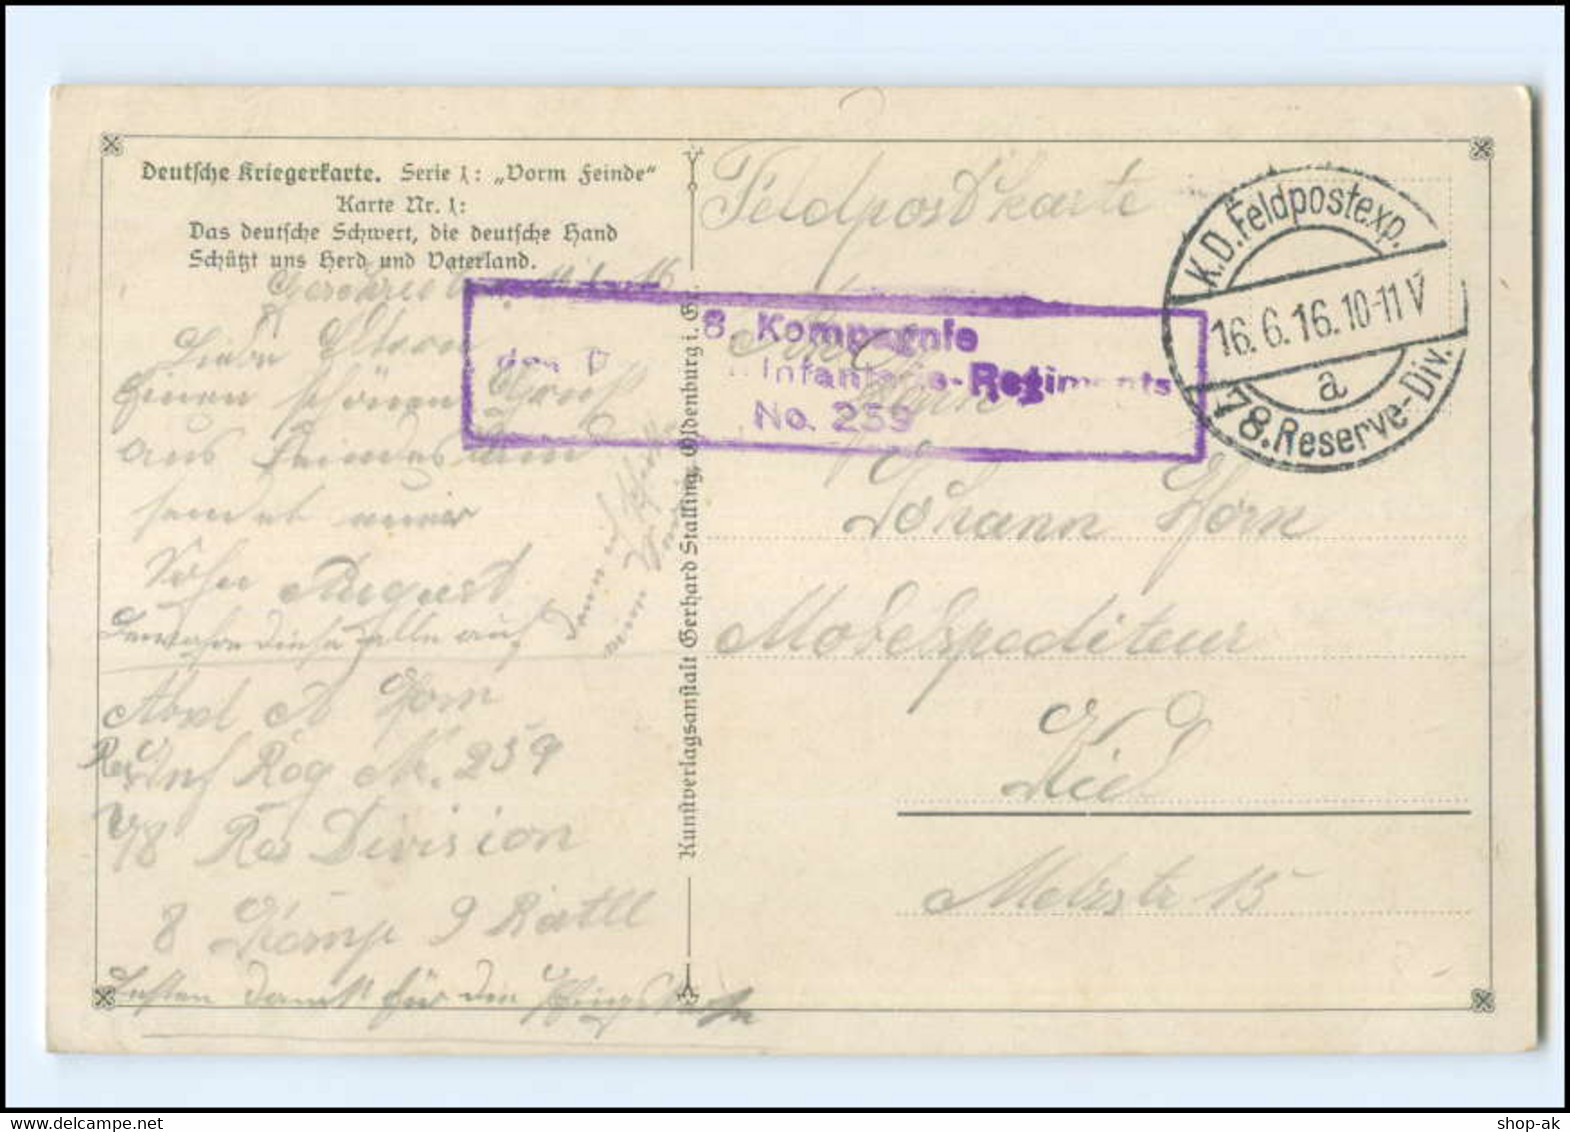 Deutsche Kriegerkarte. Serie 1: „Vorm Feinde“
Karte Nr. 1:
Das deutsche Schwert, die deutsche Hand
Schützt uns Herd und Vaterland.
Liebe Eltern
Einen schönen Gruß
aus Feindesland
sendet euer
Sohn August
Bewahre diese alle auf
Absd A Horn
Res Inf Reg Nr. 259
78 Res Division
8 Komp 9 Batll
Besten Dank für die
Kunstverlagsanstalt Gerhard Stalling, Oldenburg i. Gr.
Feldpostkarte
8. Kompagnie
des Infanterie-Regiments
No. 259
K.D. Feldpostexp.
16.6.16.10-11 V
a
78. Reserve-Div.
Horn
Johann Horn
Möbelspediteur
Kiel
Str 15
shop-ak